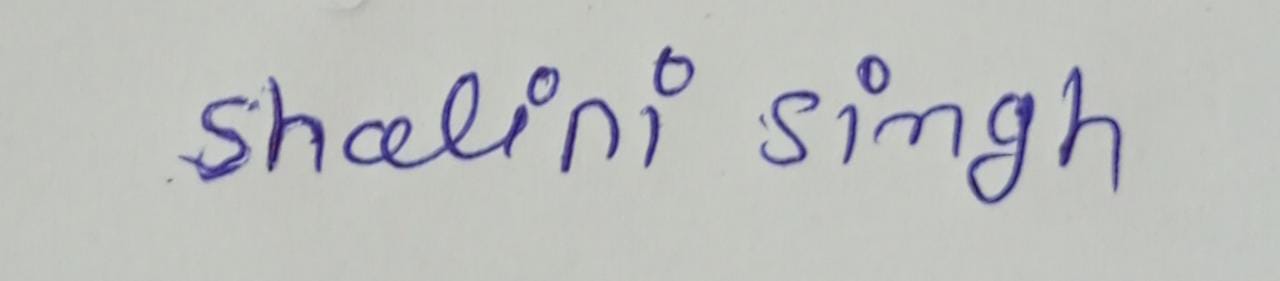 shalini singh